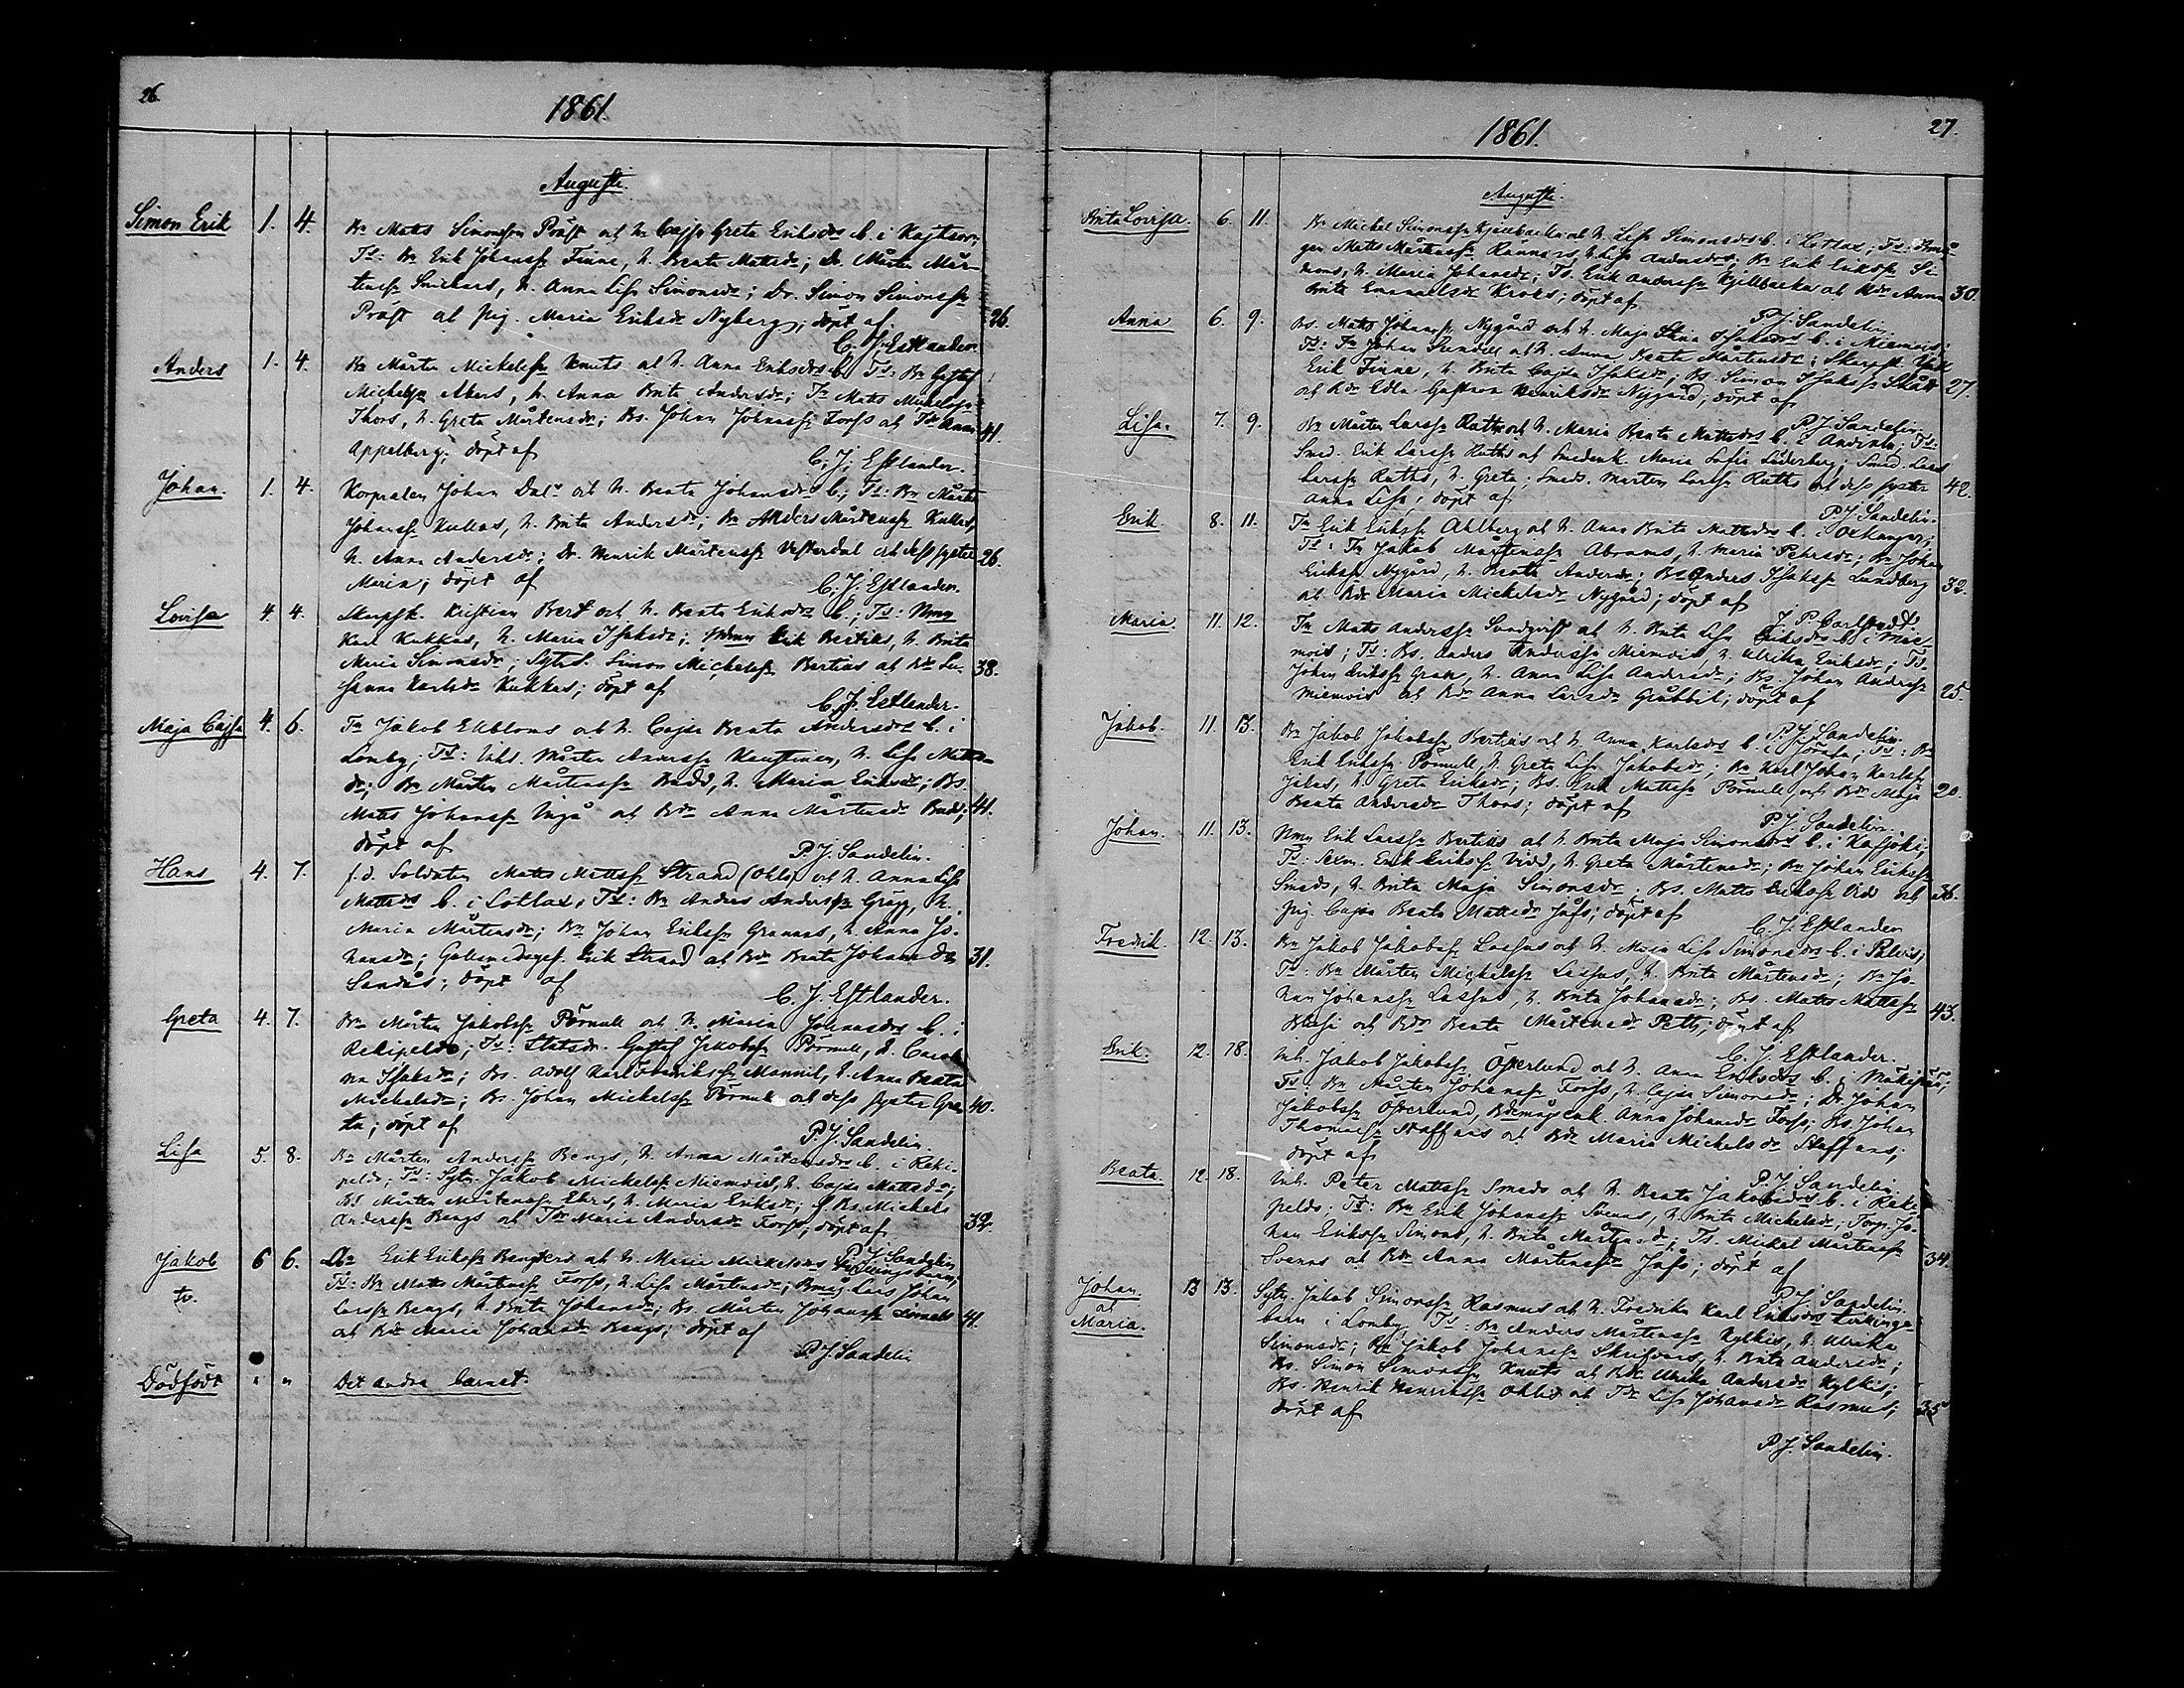 26.
1861.
Augusti.
Simon Erik 1. 4. Bn Matts Simonss Präst och h. Cajsa Greta Eriksdrs b. i
Ts: Bn Erik Johanss Finne, h. Beata Mattsdr; Dr. Mårten Mår-
tenss Snickars, h. Anna Lisa Simonsdr; Dr. Simon Simonss
Präst och Pig. Maria Eriksdr Nyberg; döpt af 26.
C. J. Estlander.
Anders 1. 4. Bn Mårten Mickelss Knuts och h. Anna Eriksdrs b. Ts: Bn Gustaf
Mickelss Akers, h. Anna Brita Andersdr; Tn Matts Mickelss
Thors, h. Greta Mårtensdr; Bs. Johan Johanss Forss och Tdr Anna 41.
Appelberg; döpt af
C. J. Estlander.
Johan. 1. 4. Korpralen Johan Dal och h. Beata Johansdrs b.; Ts: Bn Mårten
Johanss Kullas, h. Brita Andersdr; Bn Anders Mårtenss Kullas,
h. Anna Andersdr; Dr. Henrik Mårtenss Vesterdal och dess syster 26.
Maria; döpt af
C. J. Estlander.
Lovisa 4. 4. Skarpsk. Kristian Bert och h. Beata Eriksdrs b.; Ts: Nmn
Karl Kukkas, h. Maria Isaksdr; Nmn Erik Bertils, h. Brita
Maria Simonsdr; Sytn. Simon Mickelss Bertias och Bdr Su- 38.
sanna Karlsdr Kukkas; döpt af
C. J. Estlander.
Maja Cajsa 4. 6. Tn Jakob Ekbloms och h. Cajsa Beata Andersdrs b. i
Lomby; Ts: Inh. Mårten Anderss Kaustinen, h. Lisa Matts-
dr; Bn Mårten Mårtenss Budd, h. Maria Eriksdr; Bs.
Matts Johanss Ingå och Bdr Anna Mårtensdr Budd; 41.
döpt af
P. J. Sandelin.
Hans 4. 7. f.d. Soldaten Matts Mattss Strand (Ohls) och h. Anna Lisa
Mattsdrs b. i Lotlax; Ts: Bn Anders Anderss Grägg, h.
Maria Mårtensdr; Bn Johan Erikss Grannas, h. Anna Jo-
hansdr; Gulsmedsges. Erik Strand och Bdr Beata Johansdr 31.
Sandås; döpt af
C. J. Estlander.
Greta 4. 7. Bn Mårten Jakobss Pörnull och h. Maria Johansdrs b. i
Rekipeldo; Ts: Statsdr. Gustaf Jakobss Pörnull, h. Caroli-
na Isaksdr; Bs. Adolf Karl Fredrikss Mannil, h. Anna Beata
Mickelsdr; Bs. Johan Mickelss Pörnull och dess syster Gre- 40.
ta; döpt af
P. J. Sandelin.
Lisa 5. 8. Bn Mårten Anderss Bengs, h. Anna Mårtensdrs b. i Reki-
peldo; Ts: Sytn Jakob Mickelss Miemois, h. Cajsa Mattsdr;
Bs Mårten Mårtenss Ehrs, h. Maria Eriksdr; Bs. Mickel
Anderss Bengs och Tdr Maria Andersdr Forss; döpt af 32.
P. J. Sandelin
Jakob 6 6. Erik Erikss och h. Maria Mickelsdrs tvillingbarn;
tv. Ts: Bn Matts Mårtenss Forss, h. Lisa Mårtensdr; Bmåg Lars Johan
Larss Bengs, h. Brita Johansdr; Bs. Mårten Johanss 41.
och Bdr Maria Johansdr Bengs; döpt af
P. J. Sandelin
Dödfödt " " Det andra barnet.
27.
1861.
Augusti.
Brita Lovisa. 6. 11. Bn Mickel Simonss Kjellbacka och h. Lisa Simonsdrs b. i Lotlax; Ts: Bmå-
gen Matts Mårtenss Rännars, h. Lisa Andersdr; Bn Erik Erikss Si-
mons, h. Maria Johansdr; Ts. Erik Anderss Kjellbacka och Bdr Anna 30.
Brita Emanuelsdr Kroks; döpt af
P. J. Sandelin.
Anna 6. 9. Bs. Matts Johanss Nygård och h. Maja Stina Isaksdrs b. i Miemois;
Ts: Tn Johan Sundell och h. Anna Beata Mårtensdr; Skarpsk.
Erik Finne, h. Brita Cajsa Isaksdr; Bs. Simon Isakss Skått 27.
och Bdr Edla Gustava Henriksdr Nygård; döpt af
P. J. Sandelin.
Lisa. 7. 9. Bn Mårten Larss Ratts och h. Maria Beata Mattsdrs b. i Andiala; Ts:
Smed. Erik Larss Ratts och Smedenk. Maria Sofia Söderberg; Smed. Lars
Larss Ratts, h. Greta; Smeds. Mårten Larss Ratts och dess syster 42.
Anna Lisa; döpt af
P. J. Sandelin.
Erik. 8. 11. Tn Erik Erikss Ahlberg och h. Anna Brita Mattsdrs b. i Oxkangar;
Ts: Tn Jakob Mårtenss Abrams, h. Maria Pehrsdr; Bn Johan
Erikss Nygård, h. Beata Andersdr; Bs Anders Isakss Lundberg 32.
och Bdr Maria Mickelsdr Nygård; döpt af
J. P. Carlstedt.
Maria. 11. 12. Tn Matts Anderss Sundqvist och h. Brita Lisa Eriksdrs b. i Mie-
mois; Ts: Bs. Anders Anderss Miemois, h. Ulrika Eriksdr; Ts.
Johan Erikss Gran, h. Anna Lisa Andersdr; Bs. Johan Anderss 25.
Miemois och Bdr Anna Larsdr Grabbil; döpt af
P. J. Sandelin.
Jakob. 11 13. Bn Jakob Jakobss Bertias och h. Anna Karlsdrs b. i Jörala; Ts: Bn
Erik Erikss Pörnull, h. Greta Lisa Jakobsdr; Bn Karl Johan Karlss
Julas, h. Greta Eriksdr; Bs. Erik Mattss Pörnull och Bdr Maja 20.
Beata Andersdr Thors; döpt af
P. J. Sandelin.
Johan. 11. 13. Nmn Erik Larss Bertills och h. Brita Maja Simonsdrs b. i Kaspoki;
Ts: Sexm. Erik Erikss Vidd, h. Greta Mårtensdr; Bn Johan Erikss
Smeds, h. Brita Maja Simonsdr; Bs. Matts Erikss Vidd och 36.
Pig. Cajsa Beata Mattsdr Jåfs; döpt af
C. J. Estlander
Fredrik. 12. 13. Bn Jakob Jakobss Lassus och h. Maja Lisa Simonsdrs b. i Palvis;
Ts: Bn Mårten Mickelss Lassus, h. Brita Mårtensdr; Bn Jo-
han Johanss Lassus, h. Brita Johansdr; Bs. Matts Mattss 43.
Klasi och Bdr Beata Mårtensdr Petts; döpt af
C. J. Estlander.
Erik. 12. 18. Inh. Jakob Jakobss Österlund och h. Anna Eriksdrs b. i Mäkipää;
Ts: Bn Mårten Johanss Forss, h. Cajsa Simonsdr; Dr. Johan
Jakobss Österlund, Bdrmågenk. Anna Johansdr Forss; Bs Johan
Thomass Staffans och Bdr Maria Mickelsdr Staffans;
döpt af
P. J. Sandelin
Beata. 12. 18. Inh. Peter Mattss Smeds och h. Beata Jakobsdrs b. i Reki-
peldo; Ts: Bn Erik Johanss Svenns, h. Brita Mickelsdr; Torp. Jo-
han Erikss Simons, h. Brita Mårtensdr; Ts. Mickel Mårtenss
Svenns och Bdr Anna Mårtensdr Jåfs; döpt af 34.
P. J. Sandelin.
Johan. 13 13. Sytn. Jakob Simonss Rasmus och h. Fredrika Karl Eriksdrs tvillinge-
och barn i Lomby; Ts: Bn Anders Mårtenss Kylkis, h. Ulrika
Maria. Simonsdr; Bn Jakob Johanss Skrifvars, h. Brita Andersdr;
Bs. Simon Simonss Knuts och Bdr Ulrika Andersdr Kylkis;
Bs. Henrik Henrikss Ohlis och Tdr Lisa Johansdr Rasmus; 35
döpt af
P. J. Sandelin.